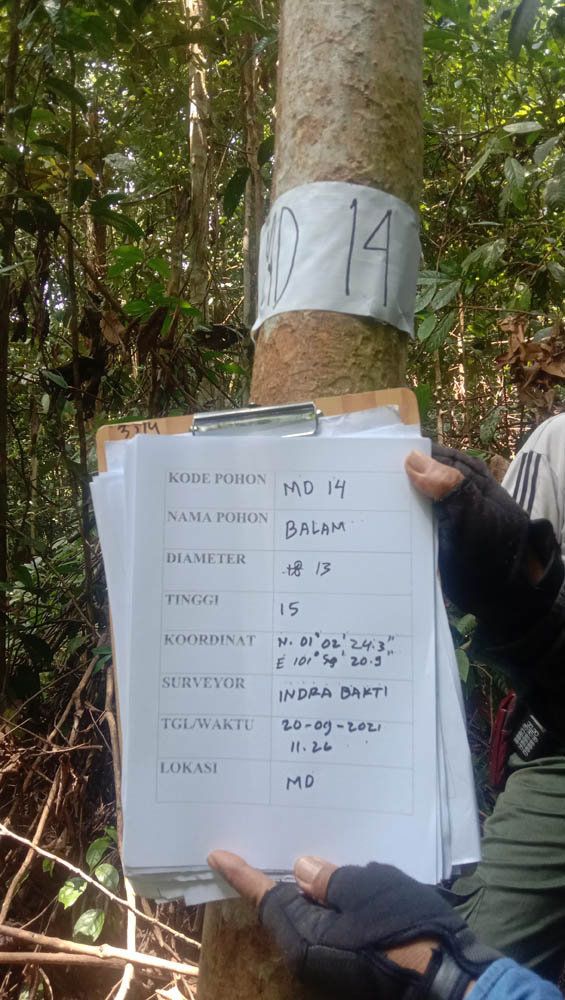 MD 14
3514
KODE POHON MD 14
NAMA POHON BALAM
DIAMETER 13
TINGGI 15
KOORDINAT N. 01° 02' 24.3"
E 101° 59' 20.9"
SURVEYOR INDRA BAKTI
TGL/WAKTU 20-09-2021
11.26
LOKASI MD